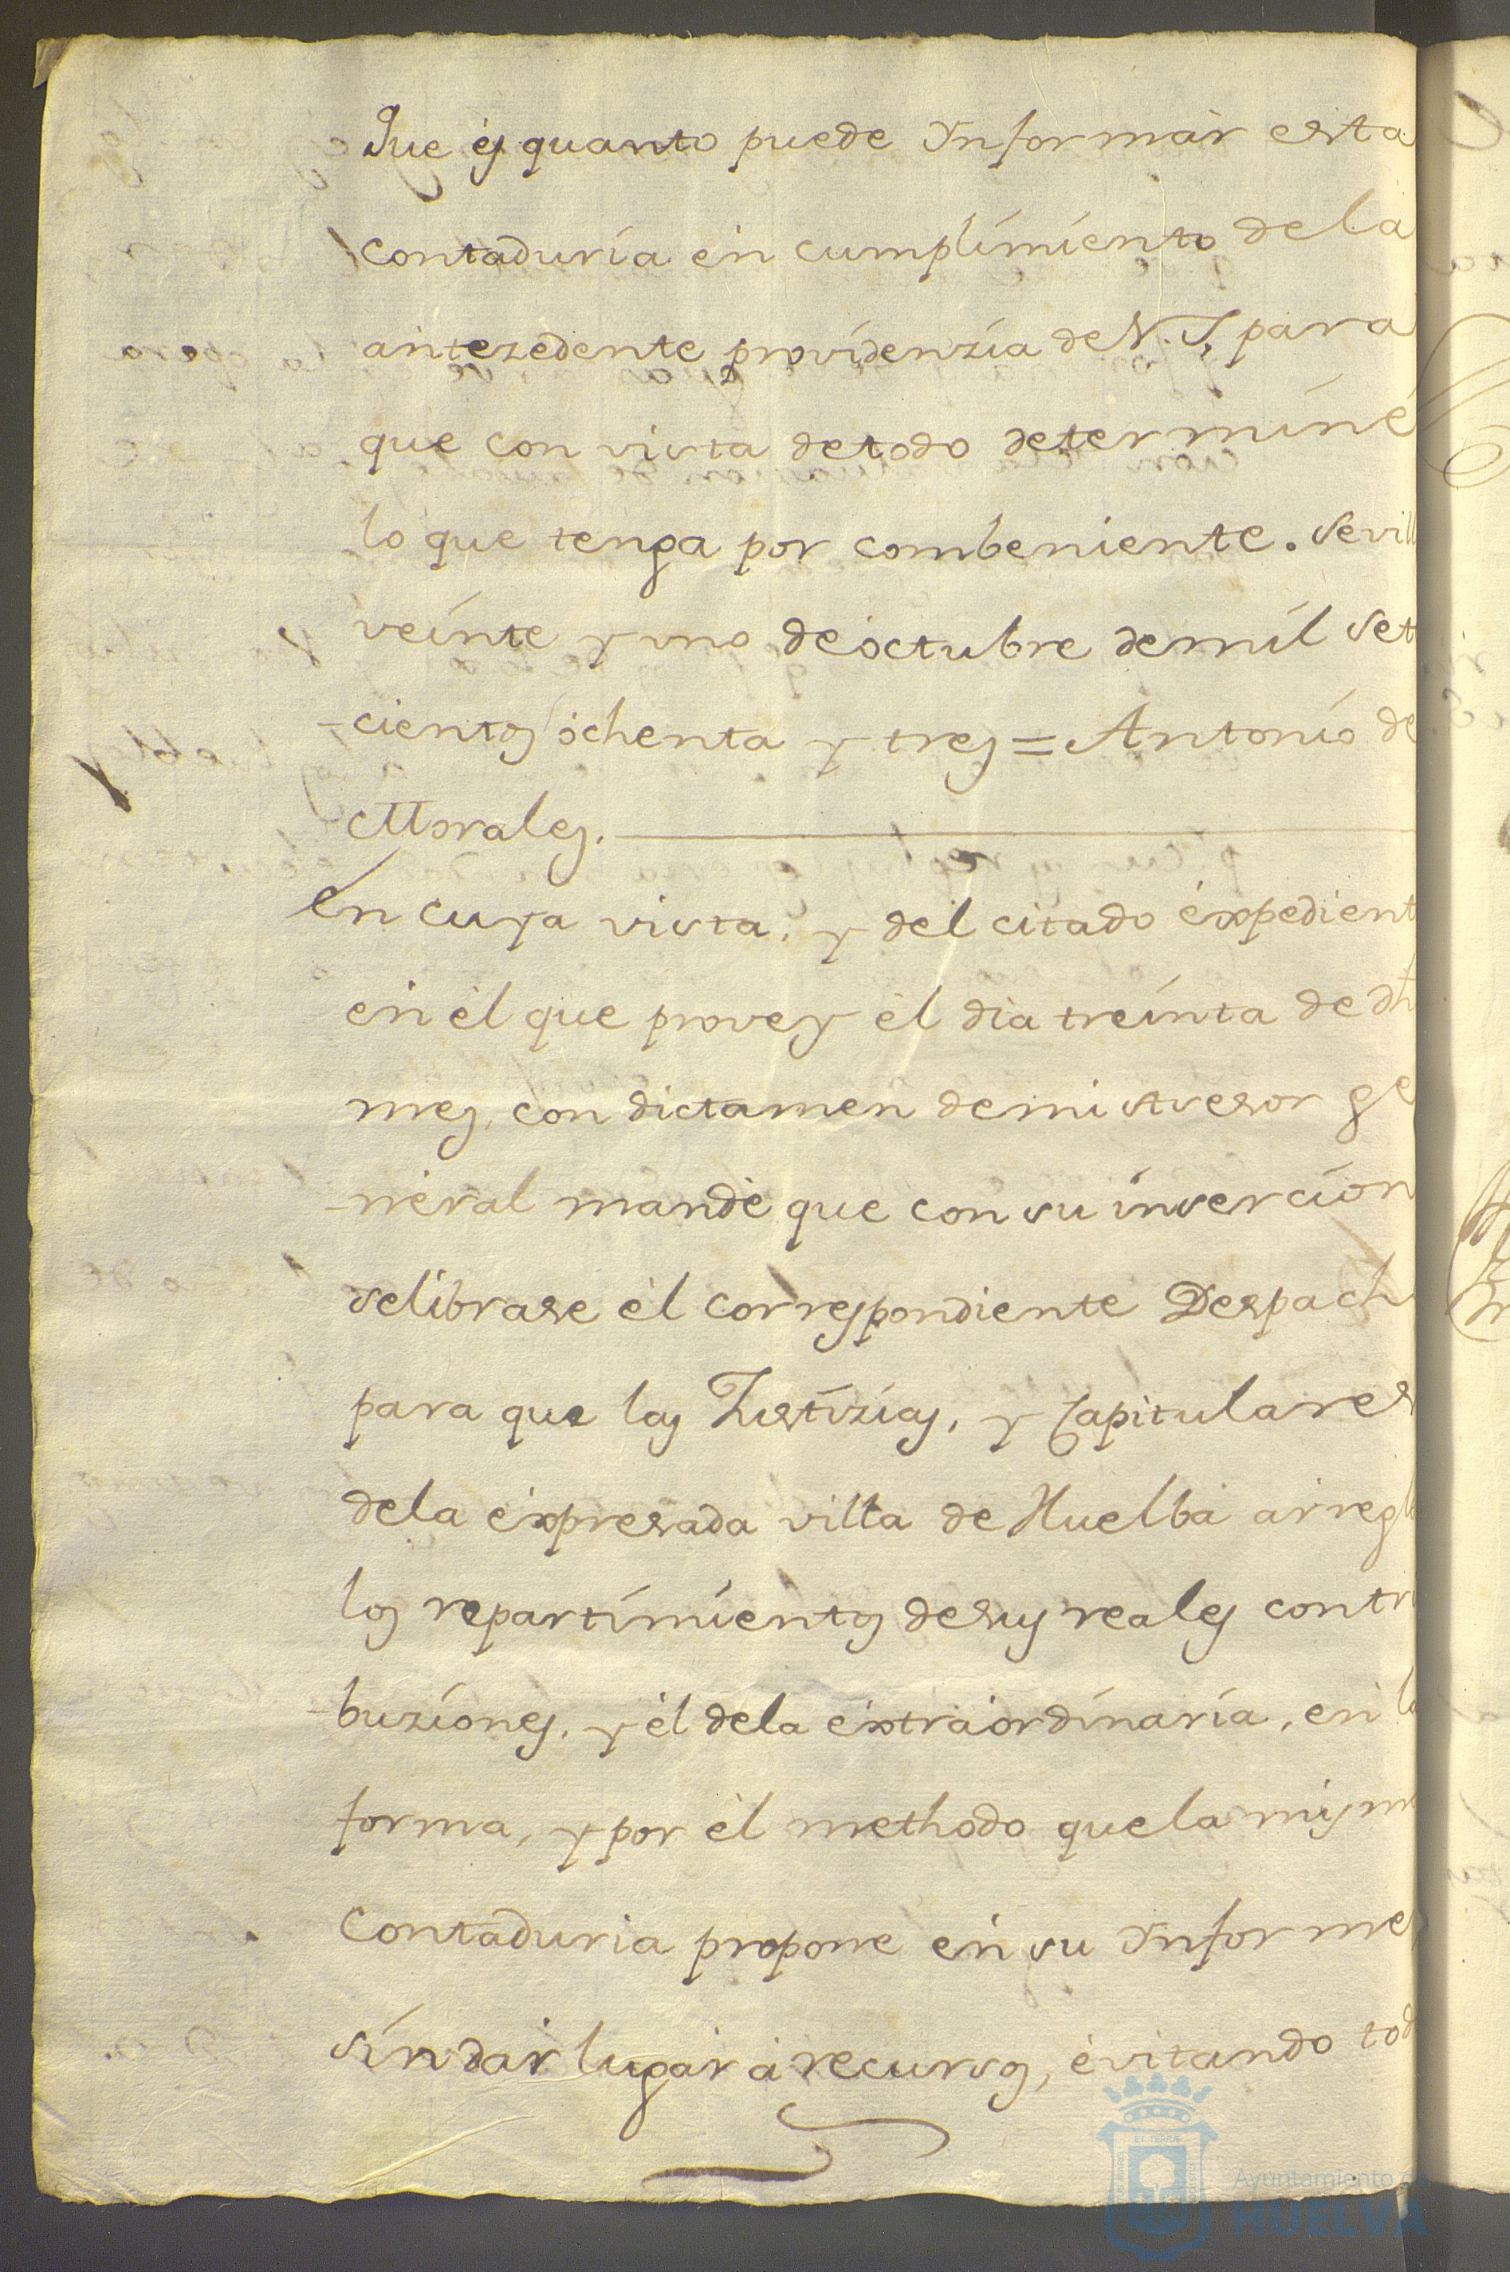 Que es quanto puede Ynformar esta
contaduría en cumplímíento dela
antezedente providenzía de V. S. para
que con vista detodo determíne
lo que tenga por combeniente. Sevill
veínte y uno de octubre demíl set
cientos ochenta y tres = Antonío de
Morales.
En cuya vista, y del citado expedient
en el que provey el dia treínta de dh
mes, con dictamen demi Asesor ge
neral mandè que con su ínsercíon
selibrase el correspondiente Despach
para que las Justízías, y Capitulares
dela expresada villa de Huelba arregl
los repartímíentos desus reales contri
buzíones, y el dela extraordínaría, en la
forma, y por el methodo quela mism
Contaduria propone en su Ynforme,
sín dar lugar a recursos, evitando tod
Ayuntamiento de
HUELVA